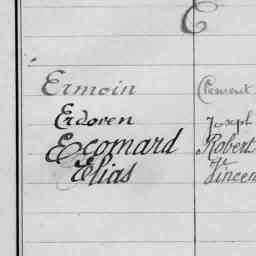 E
Ermoin Clement
Erdoren Joseph
Ecomard Robert
Elias Vincen